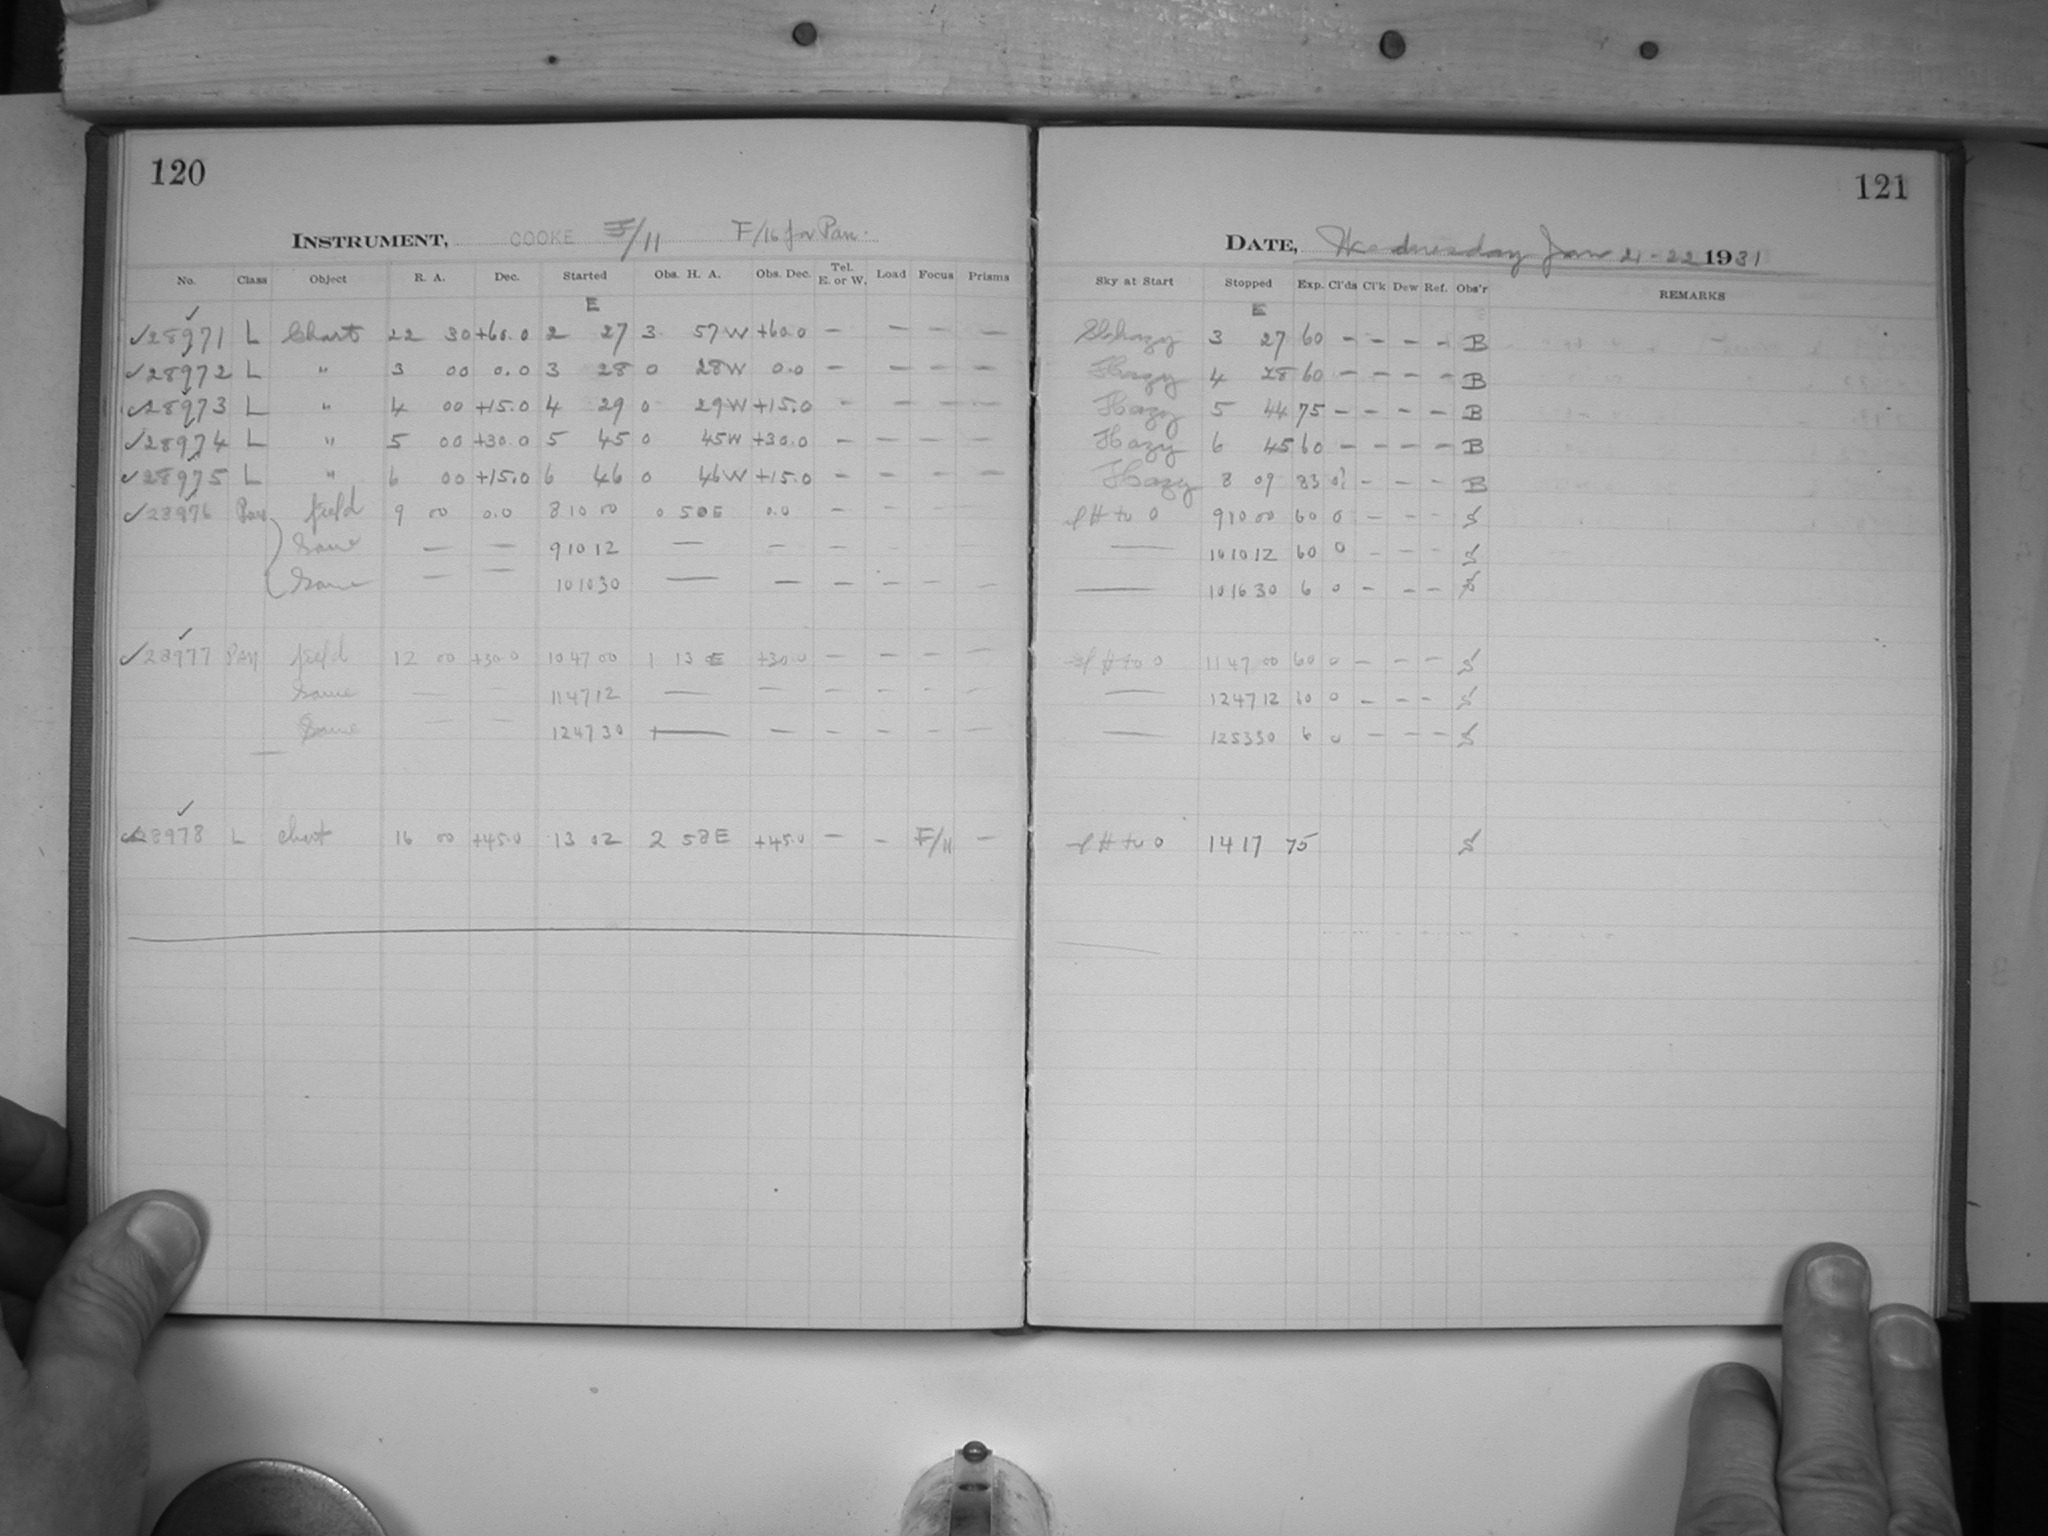 120
INSTRUMENT, COOKE F/11 F/16 for Pan.
No. Class Object R. A. Dec. Started Obs. H. A. Obs. Dec. Tel. E. or W. Load Focus Prisms
E
✓28971 L Chart 22 30 +60.0 2 27 3 57W +60.0 — — — —
✓28972 L " 3 00 0.0 3 28 0 28W 0.0 — — — —
✓28973 L " 4 00 +15.0 4 29 0 29W +15.0 — — — —
✓28974 L " 5 00 +30.0 5 45 0 45W +30.0 — — — —
✓28975 L " 6 00 +15.0 6 46 0 46W +15.0 — — — —
✓28976 Pan field 9 00 0.0 8 10 00 0 50E 0.0 — — — —
Same — — 9 10 12 — — — — — —
Same — — 10 10 30 — — — — — —
✓28977 Pan field 12 00 +30.0 10 47 00 1 13 E +30.0 — — — —
Same — — 11 47 12 — — — — — —
Same — — 12 47 30 — — — — — —
✓28978 L chart 16 00 +45.0 13 02 2 58E +45.0 — — F/11 —
121
DATE, Wednesday Jan 21-22 1931
Sky at Start Stopped Exp. Cl'ds Cl'k Dew Ref. Obs'r REMARKS
E
Sl hazy 3 27 60 — — — — B
Hazy 4 28 60 — — — — B
Hazy 5 44 75 — — — — B
Hazy 6 45 60 — — — — B
Hazy 8 09 83 0? — — — B
sl H to 0 9 10 00 60 0 — — — S
— 10 10 12 60 0 — — — S
— 10 16 30 6 0 — — — S
sl H to 0 11 47 00 60 0 — — — S
— 12 47 12 60 0 — — — S
— 12 53 30 6 0 — — — S
sl H to 0 14 17 75 S